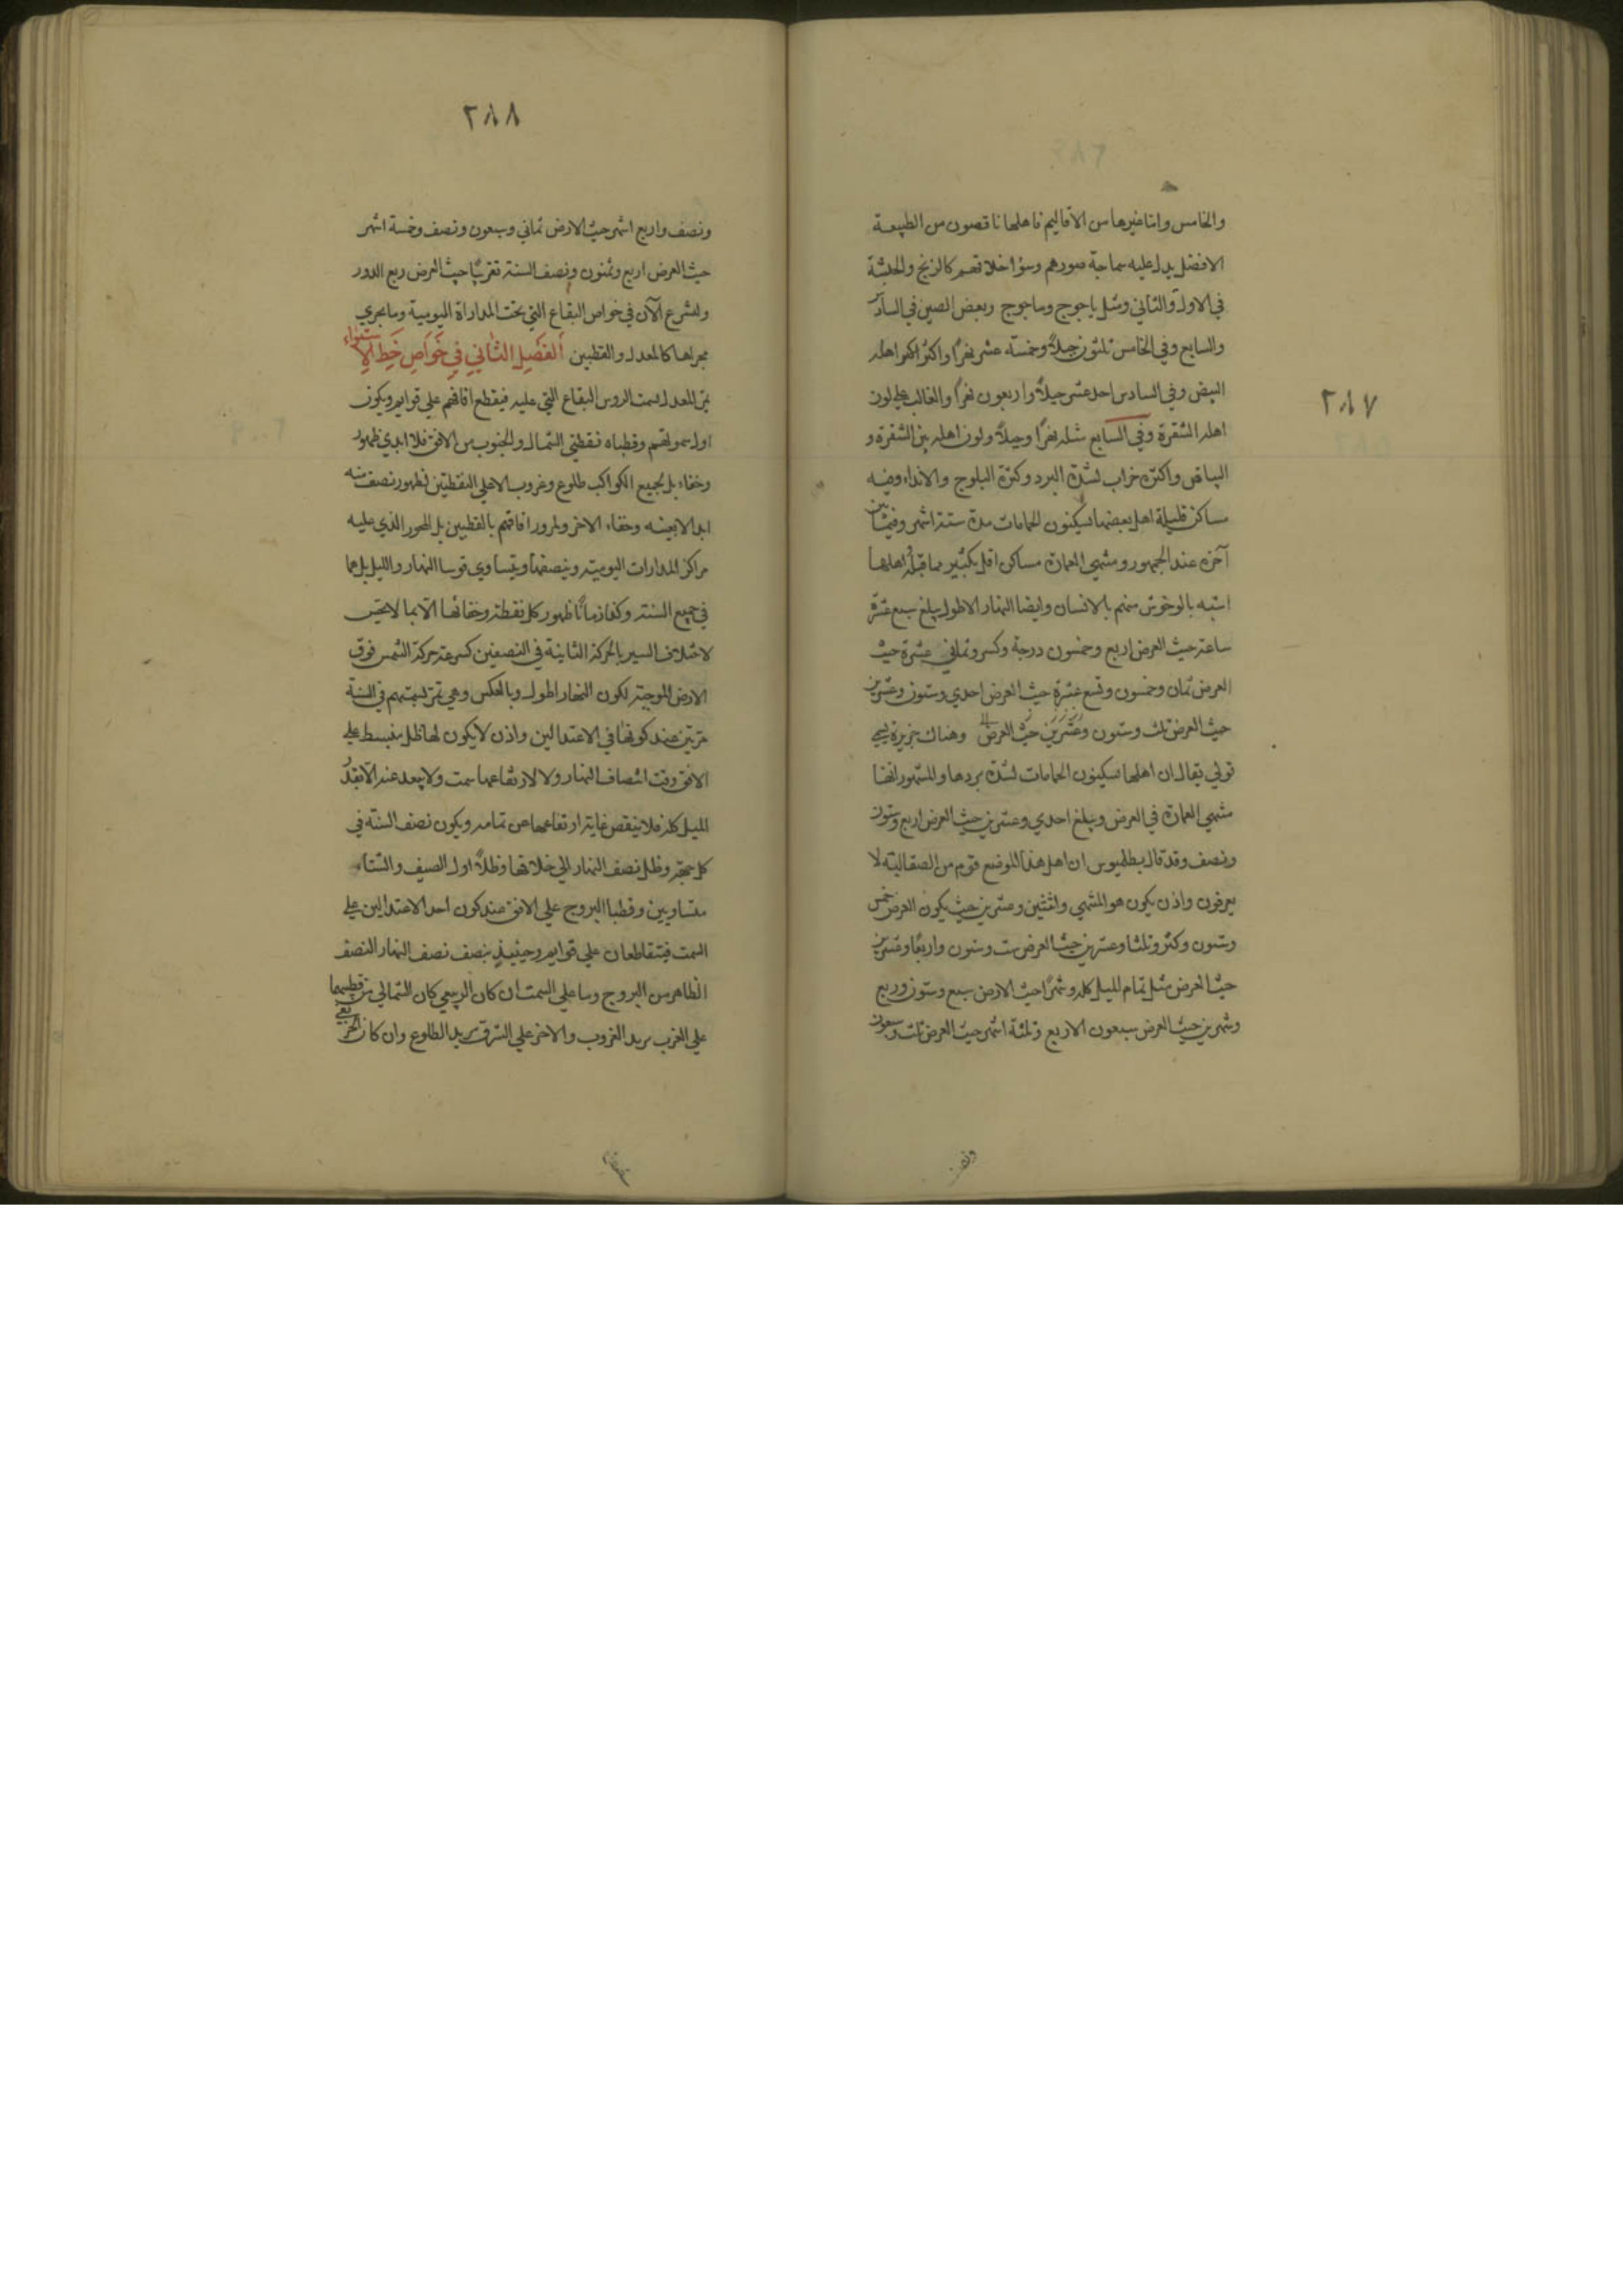 ٢٨٧
والخامس واما غيرها من الاقاليم فاهلها ناقصون من الطبيعة
الافضل يدل عليه سماجة صورهم وسؤ اخلاقهم كالزنج والحبشة
في الاول والثاني ومثل ياجوج وماجوج وبعض الصين في السادس
والسابع وفي الخامس ثلثون جبلاً وخمسة عشر نهرًا واكثر اهله
البيض وفي السادس احد عشر جبلاً واربعون نهرًا والغالب على لون
اهله الشقرة وفي السابع مثله نهرًا وجبلاً ولون اهله بين الشقرة و
البياض واكثره خراب لشدة البرد وكثرة الثلوج والانداء وفيه
مساكن قليلة اهل بعضها يسكنون الحمامات مدة ستة اشهر وفيما بين
آخره عند الجمهور ومنتهي العمارة مساكن اقل بكثير مما قبله اهلها
اشبه بالوحوش منهم بالانسان وايضا النهار الاطول يبلغ سبع عشرة
ساعة حيث العرض اربع وخمسون درجة وكسر وثماني عشرة حيث
العرض ثمان وخمسون وتسع عشرة حيث العرض احدي وستون وعشرين
حيث العرض ثلث وستون وعشرين حيث العرض وهناك جزيرة تسمي
تولي يقال ان اهلها يسكنون الحمامات لشدة بردها والمشهور انها
منتهي العمارة في العرض ويبلغ احدي وعشرين حيث العرض اربع وستون
ونصف وقد قال بطلميوس ان اهل هذا الموضع قوم من الصقالبة لا
يعرفون واذن يكون هو المنتهي واثنين وعشرين حيث يكون العرض خمس
وستون وكثر وثلثا وعشرين حيث العرض ست وستون واربعًا وعشرين
حيث العرض مثل تمام الميل كله وشهرًا حيث الارض سبع وستون وربع
وشهرين حيث العرض سبعون الاربع وثلثة اشهر حيث العرض ثلث وسبعون
ونصف
٢٨٨
ونصف واربع اشهر حيث الارض ثماني وسبعون ونصف وخمسة اشهر
حيث العرض اربع وثمنون ونصف السنة تقريبًا حيث العرض ربع الدور
ولنشرع الآن في خواص البقاع التي تحت المداراة اليومية وما يجري
مجراها كالمعدل والقطبين الفصل الثاني في خواص خط الاستواء
يمر المعدل لسمت الروس البقاع التي عليه فيقطع افاقهم علي قوايم ويكون
اول سموتهم وقطباه نقطتي الشمال والجنوب من الافق فلا ابدي ظهور
وخفاء بل لجميع الكواكب طلوع وغروب الا علي النقطتين لظهور نصف منه
ابدا لا بعينه وخفاء الاخر ولمرور افاقهم بالقطبين بل المحور الذي عليه
مراكز المدارات اليومية وينصفها ويتساوي قوسا النهار والليل بل هما
في جميع السنة وكذا زمانًا ظهور كل نقطة وخفائها الا بما لا يحس
لاختلاف السير بالحركة الثانية في النصفين كسرعة حركة الشمس فوق
الارض الموجبة لكون النهار اطول وبالعكس وهي تمر بسمتهم في السنة
مرتين عند كونها في الاعتدالين واذن لا يكون لها ظل منبسط علي
الافق وقت انتصاف النهار ولا لارتفاعها سمت ولا يبعد عنه الا بقدر
الميل كله فلا ينقص غاية ارتفاعها عن تمامه ويكون نصف السنة في
كل جهة وظل نصف النهار الي خلافها وظلاً اول الصيف والشتاء
متساويين وقطبا البروج علي الافق عند كون احد الاعتدالين علي
السمت فيتقاطعان علي قوايم وحينيذ ينصف نصف النهار النصف
الظاهر من البروج وما علي السمت ان كان الربيعي كان الشمالي من قطبيها
علي الغرب يريد الغروب والاخر علي الشرق يريد الطلوع وان كان الخريفي